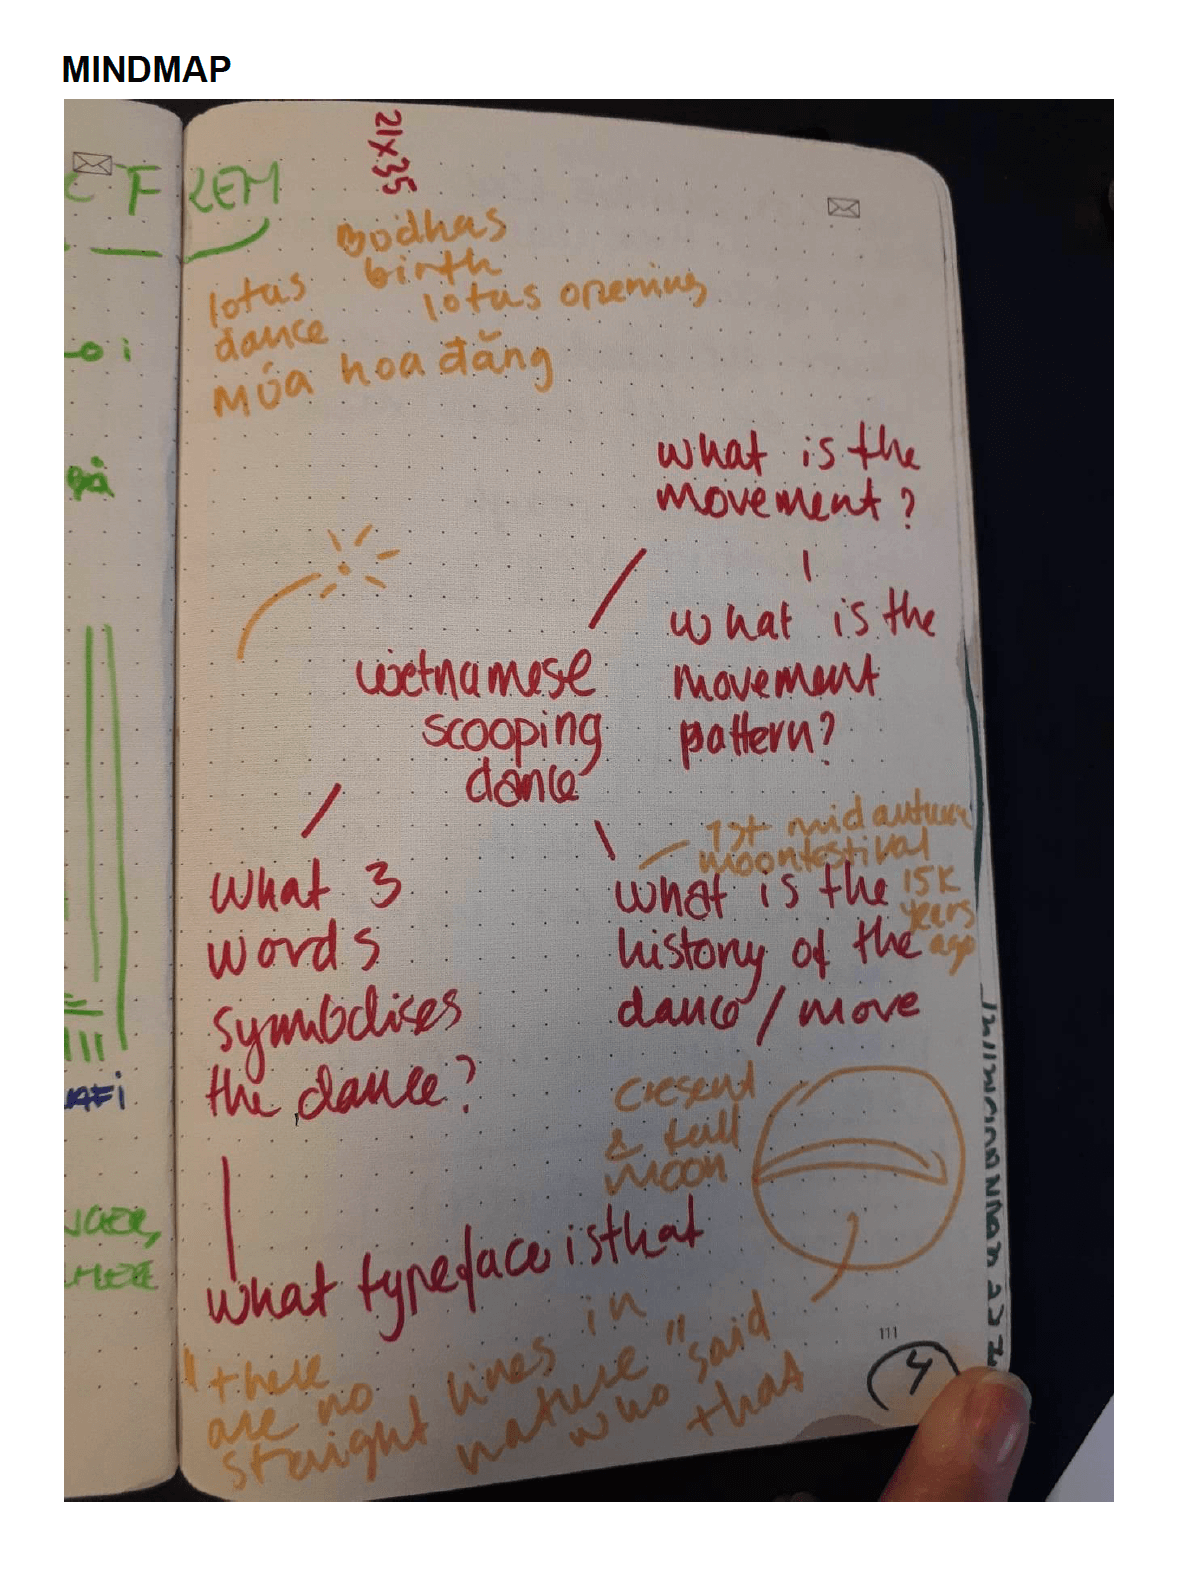 MINDMAP
21x35
FREM
Bodhas
birth
lotus
dance
lotus opening
MÚA hoa đăng
what is the
movement?
what is the
movement
pattern?
vietnamese
scooping
dance
1st mid autumn
moonfestival
15K
years
ago
what 3
words
symbolises
the dance?
what is the
history of the
dance / move
cresent
& full
moon
what typeface is that
"there
are no
straight lines in
nature" said
who that
111
4